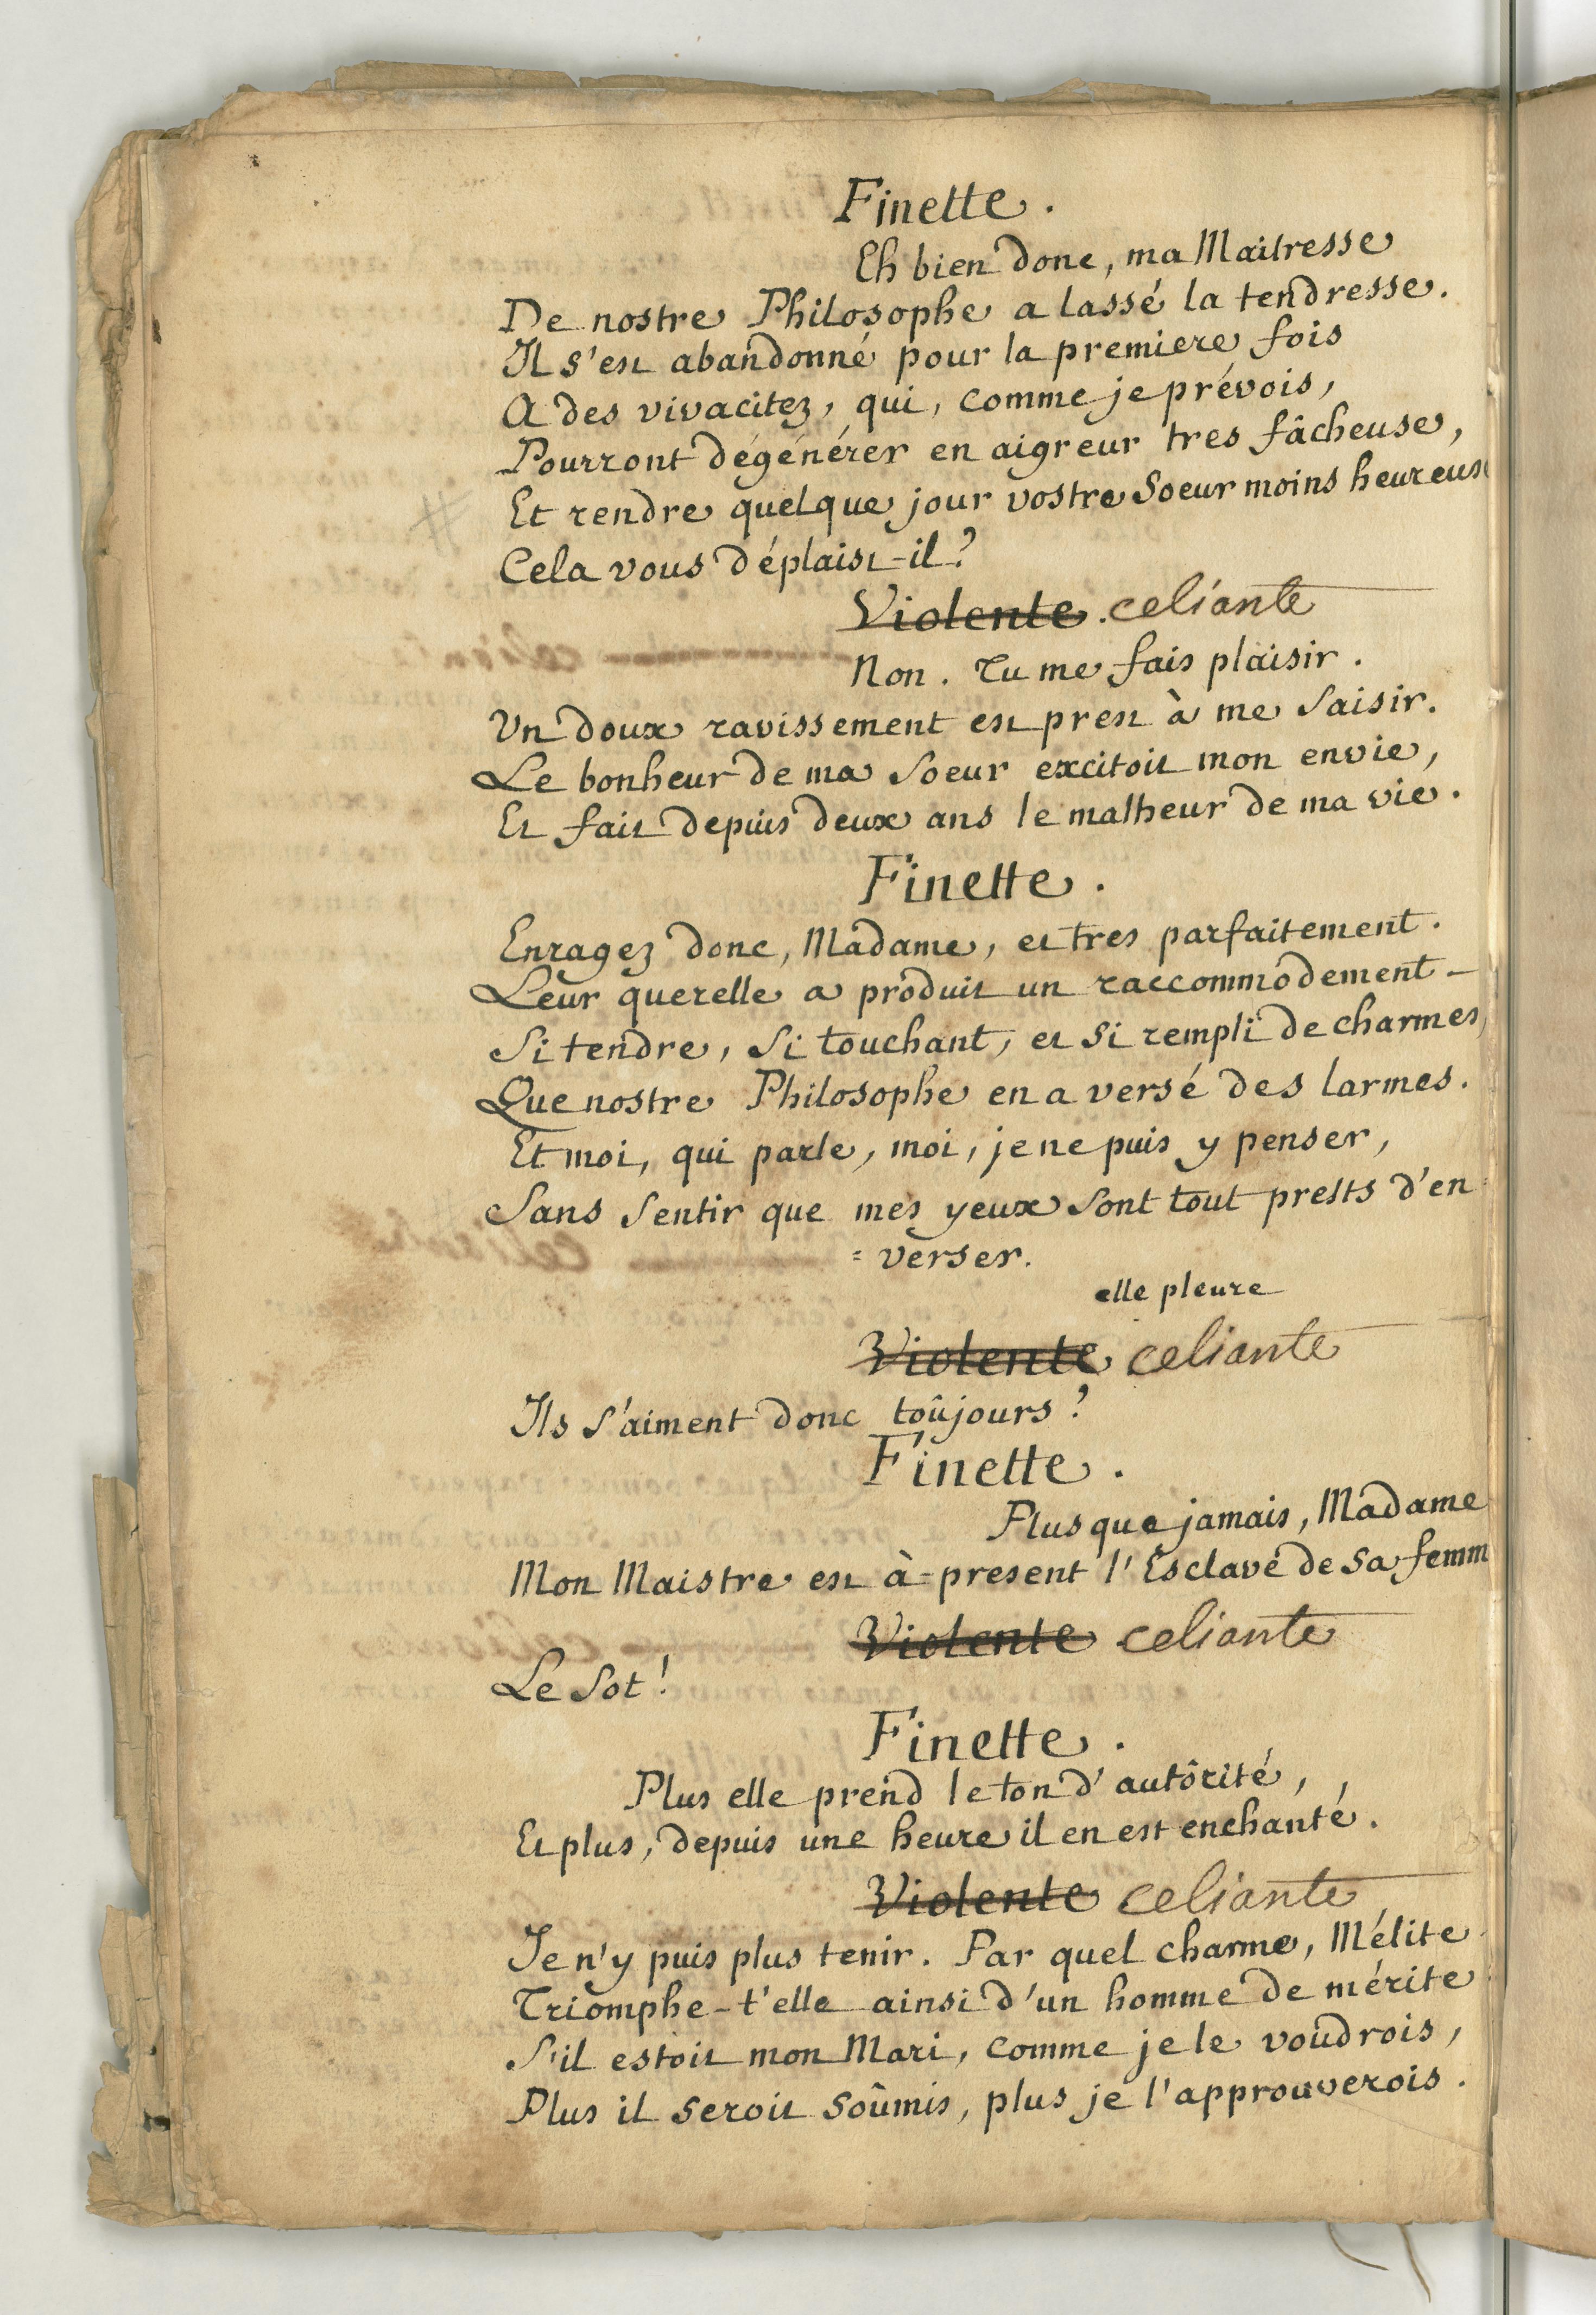 Finette.
Eh bien donc, ma Maitresse
De nostre Philosophe a lassé la tendresse.
Il s'est abandonné pour la premiere fois
A des vivacitez, qui, comme je prévois,
Pourront dégénérer en aigreur tres fâcheuse,
Et rendre quelque jour vostre Soeur moins heureuse
Cela vous déplaist-il?
Violente. celiante
Non. Tu me fais plaisir.
Un doux ravissement est prest à me saisir.
Le bonheur de ma Soeur excitoit mon envie,
Et fait depuis deux ans le malheur de ma vie.
Finette.
Enragez donc, Madame, et tres parfaitement.
Leur querelle a produit un raccommodement
Si tendre, si touchant, et si rempli de charmes,
Que nostre Philosophe en a versé des larmes.
Et moi, qui parle, moi, je ne puis y penser,
Sans sentir que mes yeux sont tout prests d'en
= verser.
elle pleure
Violente celiante
Ils s'aiment donc toûjours?
Finette.
Plus que jamais, Madame
Mon Maistre est à-present l'Esclave de sa femm
Violente celiante
Le sot!
Finette.
Plus elle prend le ton d'autôrité,
Et plus, depuis une heure il en est enchanté.
Violente celiante
Je n'y puis plus tenir. Par quel charme, Mélite
Triomphe-t'elle ainsi d'un homme de mérite
S'il estoit mon Mari, comme je le voudrois,
Plus il seroit soûmis, plus je l'approuverois.